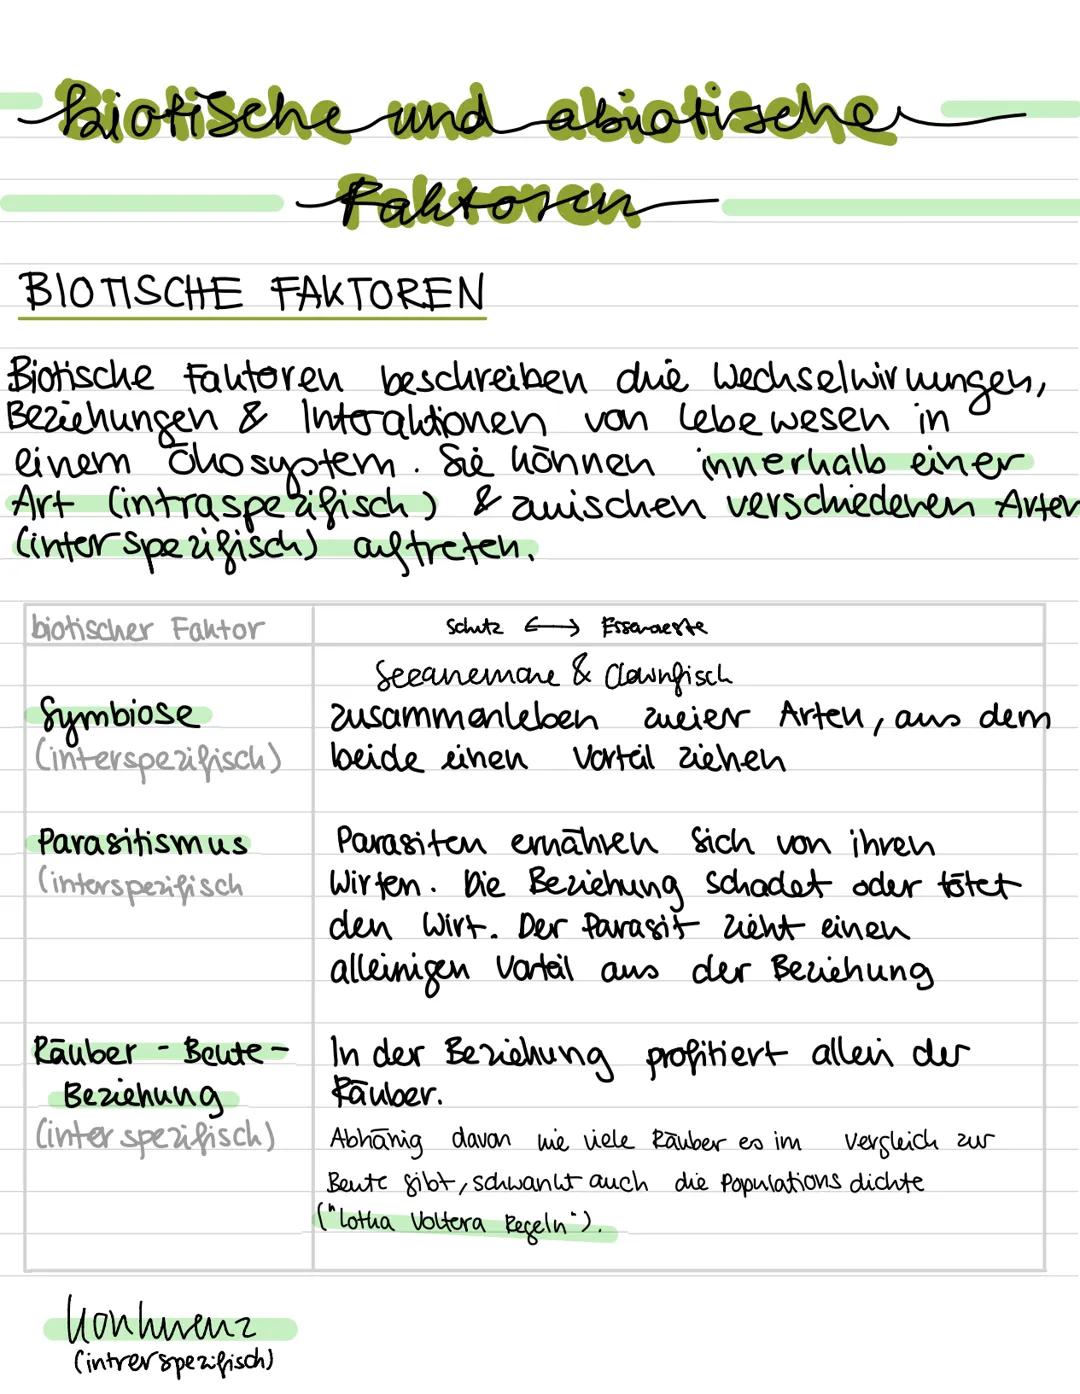 biotische und abiotische
Faktoren
BIOTISCHE FAKTOREN
Biotische Faktoren beschreiben die Wechselwirkungen,
Beziehungen & Interaktionen von Lebewesen in
einem Ökosystem. Sie können innerhalb einer
Art (intraspezifisch) & zwischen verschiedenen Arten
(interspezifisch) auftreten.
biotischer Faktor
Schutz ⟷ Essensreste
Seeanemone & Clownfisch
Symbiose
(interspezifisch)
zusammenleben zweier Arten, aus dem
beide einen Vorteil ziehen
Parasitismus
(interspezifisch
Parasiten ernähren sich von ihren
Wirten. Die Beziehung schadet oder tötet
den Wirt. Der Parasit zieht einen
alleinigen Vorteil aus der Beziehung
Räuber - Beute -
Beziehung
(interspezifisch)
In der Beziehung profitiert allein der
Räuber.
Abhänig davon wie viele Räuber es im vergleich zur
Beute gibt, schwankt auch die Populationsdichte
("Lotka Voltera Regeln").
Konkurenz
(intrerspezifisch)